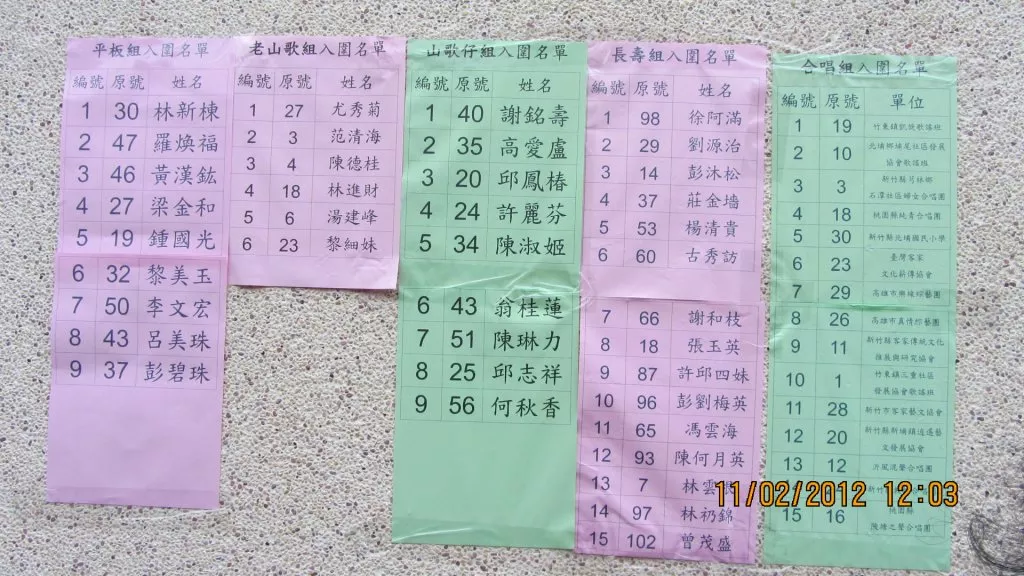 平板組入圍名單
編號 原號 姓名
1 30 林新棟
2 47 羅煥福
3 46 黃漢鈜
4 27 梁金和
5 19 鍾國光
6 32 黎美玉
7 50 李文宏
8 43 呂美珠
9 37 彭碧珠
老山歌組入圍名單
編號 原號 姓名
1 27 尤秀菊
2 3 范清海
3 4 陳德桂
4 18 林進財
5 6 湯建峰
6 23 黎細妹
山歌仔組入圍名單
編號 原號 姓名
1 40 謝銘壽
2 35 高愛盧
3 20 邱鳳椿
4 24 許麗芬
5 34 陳淑姬
6 43 翁桂蓮
7 51 陳琳力
8 25 邱志祥
9 56 何秋香
長壽組入圍名單
編號 原號 姓名
1 98 徐阿滿
2 29 劉源治
3 14 彭沐松
4 37 莊金墻
5 53 楊清貴
6 60 古秀訪
7 66 謝和枝
8 18 張玉英
9 87 許邱四妹
10 96 彭劉梅英
11 65 馮雲海
12 93 陳何月英
13 7 林雲
14 97 林礽錦
15 102 曾茂盛
合唱組入圍名單
編號 原號 單位
1 19 竹東鎮凱旋歌謠班
2 10 北埔鄉埔尾社區發展
協會歌謠班
3 3 新竹縣芎林鄉
石潭社區婦女合唱團
4 18 桃園縣純青合唱團
5 30 新竹縣北埔國民小學
6 23 臺灣客家
文化薪傳協會
7 29 高雄市樂臻綜藝團
8 26 高雄市真情綜藝團
9 11 新竹縣客家傳統文化
推展與研究協會
10 1 竹東鎮三重社區
發展協會歌謠班
11 28 新竹市客家藝文協會
12 20 新竹縣新埔鎮逍遙藝
文發展協會
13 12 沂風混聲合唱團
新竹
15 16 桃園縣
陂塘之聲合唱團
11/02/2012 12:03